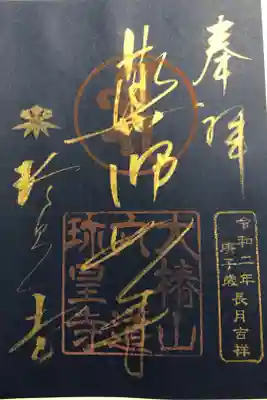 奉拝
薬師
大椿山
六道
珎皇寺
珎皇寺
令和二年
庚子歳
長月吉祥